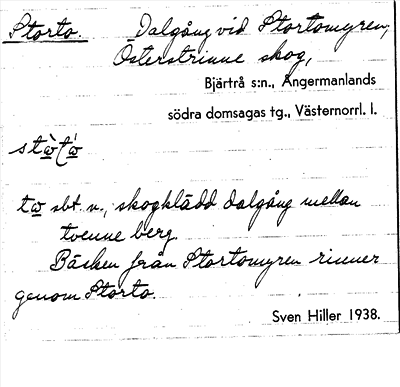 Storto. Dalgång vid Stortomyren,
Österstrinne skog,
Bjärtrå s:n., Ångermanlands
södra domsagas tg., Västernorrl. l.
tω sbt. n., skogklädd dalgång mellan
tvenne berg.
Bäcken från Stortomyren rinner
genom Storto.
Sven Hiller 1938.